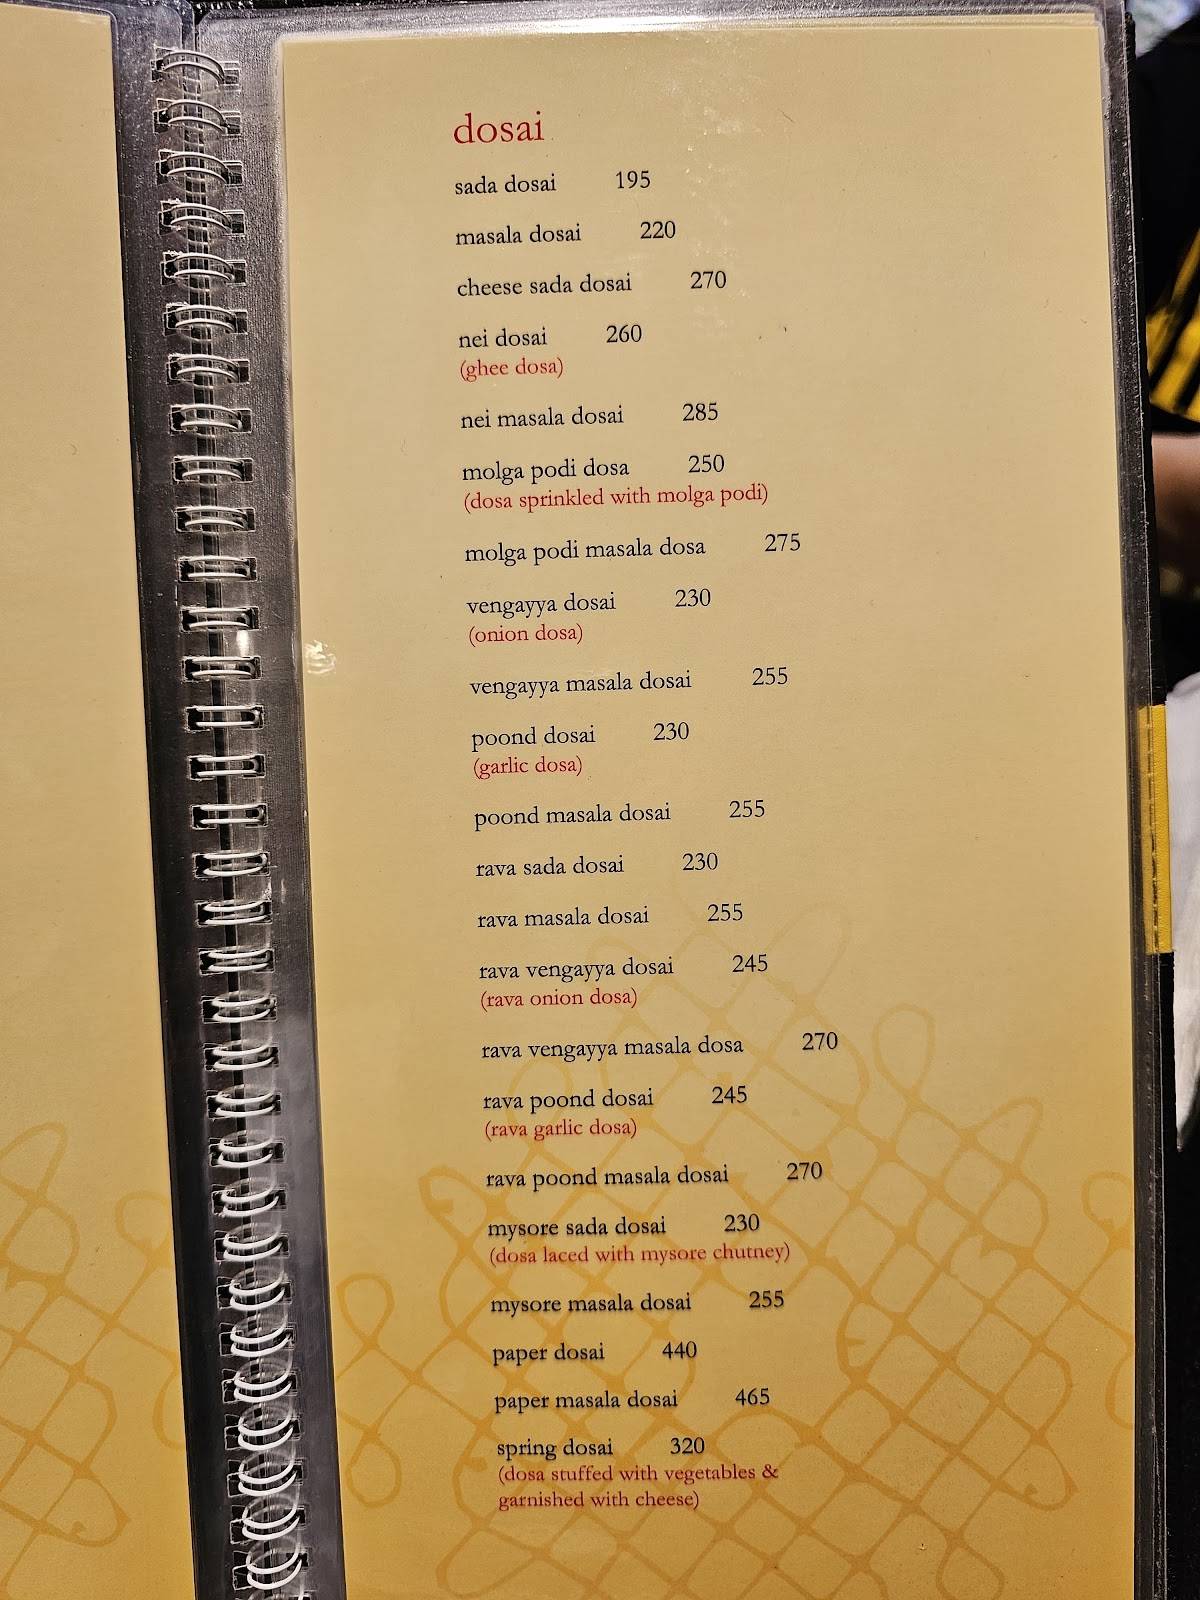 dosai
sada dosai 195
masala dosai 220
cheese sada dosai 270
nei dosai 260
(ghee dosa)
nei masala dosai 285
molga podi dosa 250
(dosa sprinkled with molga podi)
molga podi masala dosa 275
vengayya dosai 230
(onion dosa)
vengayya masala dosai 255
poond dosai 230
(garlic dosa)
poond masala dosai 255
rava sada dosai 230
rava masala dosai 255
rava vengayya dosai 245
(rava onion dosa)
rava vengayya masala dosa 270
rava poond dosai 245
(rava garlic dosa)
rava poond masala dosai 270
mysore sada dosai 230
(dosa laced with mysore chutney)
mysore masala dosai 255
paper dosai 440
paper masala dosai 465
spring dosai 320
(dosa stuffed with vegetables &
garnished with cheese)